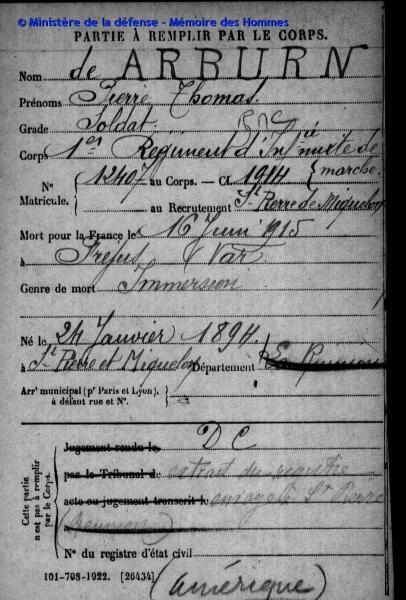 © Ministère de la défense - Mémoire des Hommes
PARTIE À REMPLIR PAR LE CORPS.
Nom de ARBURN
Prénoms Pierre Thomas
Grade Soldat
Corps 1er Régiment d'Infie mixte de marche.
N° Matricule. 12407 au Corps. — Cl. 1914
au Recrutement St Pierre de Miquelon
Mort pour la France le 16 Juin 1915
à Fréjus Var
Genre de mort Immersion
Né le 24 Janvier 1894.
à St Pierre et Miquelon Département La Réunion
Arrt municipal (pr Paris et Lyon),
à défaut rue et N°.
Cette partie n'est pas à remplir par le Corps.
Jugement rendu le D C
par le Tribunal de extrait du registre
acte ou jugement transcrit le St Pierre
(Réunion)
N° du registre d'état civil
101-708-1922. [26434]
(Amérique)